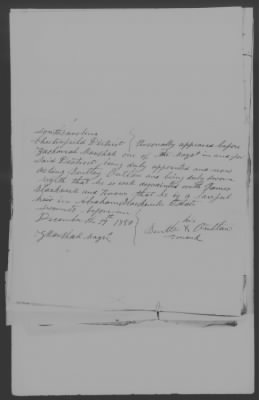 South Carolina
Chesterfield District } Personally appeared before
Zachariah Marshal one of the magst in and for
Said District, being duly appointed and now
acting Smitley Outlaw and being duly sworn
saith that he is well acquainted with James
and knows that he is a lawful
heir in Abraham Estate
Sworn to before me
December the 19th 1850
his
Outlaw
mark
Z Marshal magst